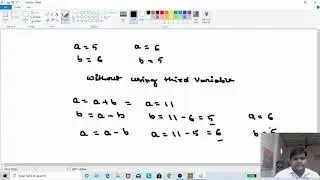 a = 5 a = 6
b = 6 b = 5
without using third variable
a = a + b = a = 11
b = a - b b = 11 - 6 = 5 a = 6
a = a - b a = 11 - 5 = 6 b = 5